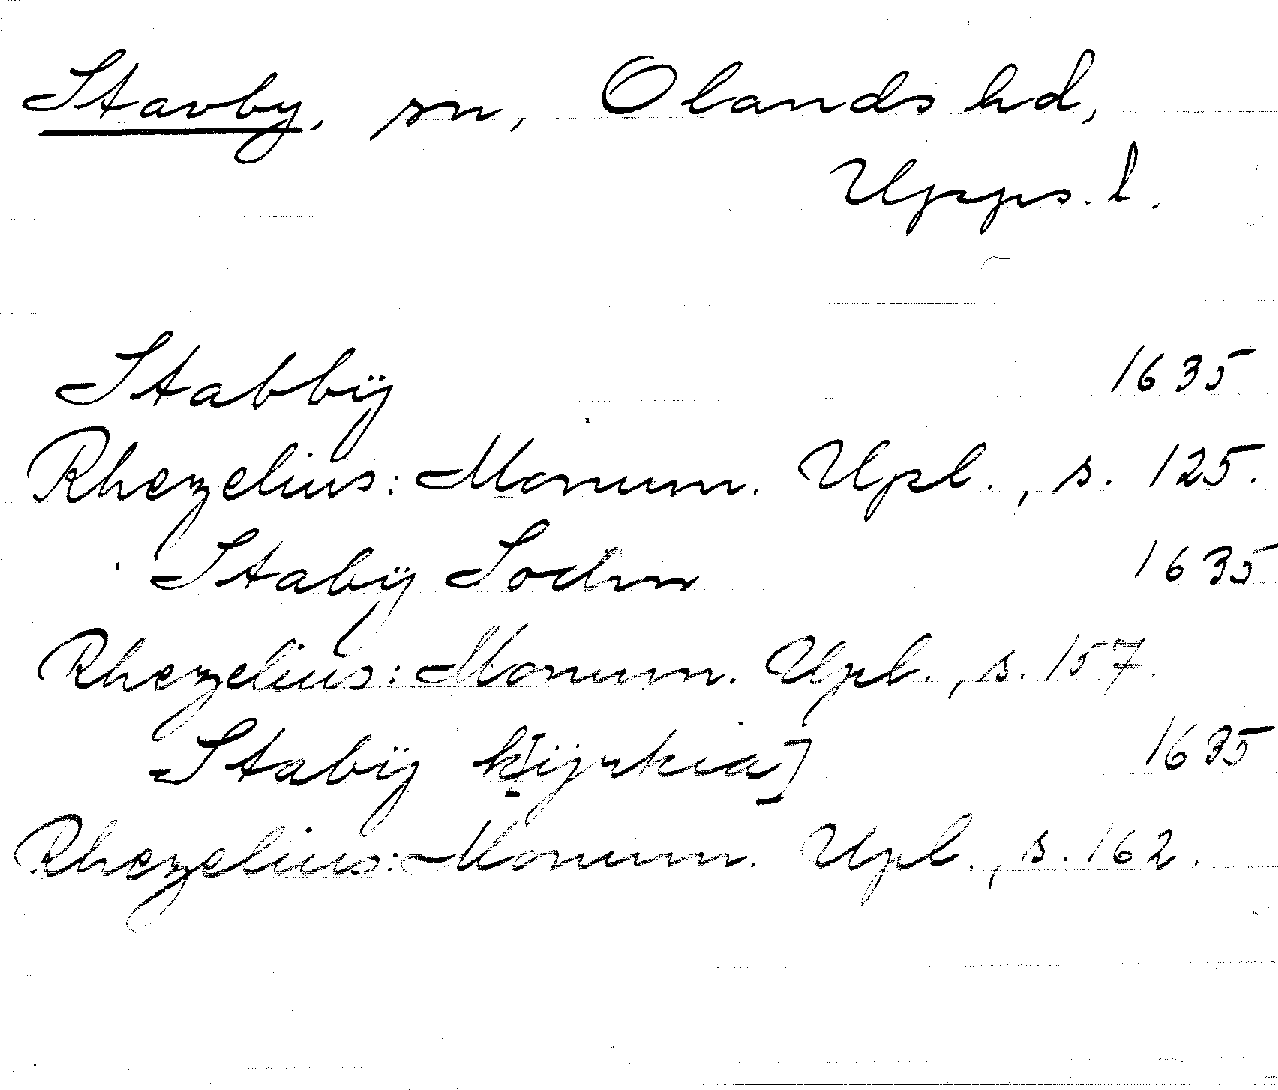 Stavby, sn, Olands hd,
Upps. l.
Stabbÿ 1635
Rhezelius: Monum. Upl., s. 125.
Stabÿ Sochn 1635
Rhezelius: Monum. Upl., s. 157.
Stabÿ k[ÿrkia] 1635
Rhezelius: Monum. Upl., s. 162.